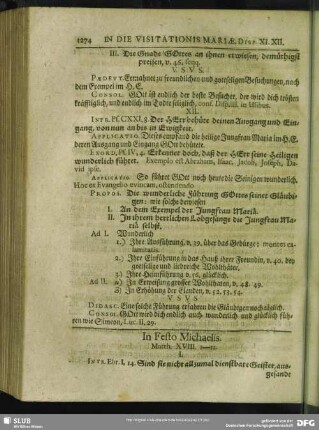 1274 IN DIE VISITATIONIS MARIÆ. DISP. XI. XII.
III. Die Gnade GOttes an ihnen erwiesen, demüthigst
preisen, v. 46. seqq.
V S V S.
PÆDEVT. Ermahnet zu freundlichen und gottseligen Besuchungen, nach
dem Exempel im H. E.
CONSOL. GOtt ist endlich der beste Besucher, der wird dich trösten
kräfftiglich, und endlich im Tode seliglich, conf. Disposit. in
XII.
INTR. Ps. CXXI, 8. Der HErr behüte deinen Ausgang und Ein-
gang, von nun an bis in Ewigkeit.
APPLICATIO. Dieses empfand die heilige Jungfrau Maria im H. E.
deren Ausgang und Eingang GOtt behütete.
EXORD. Ps. IV, 4. Erkennet doch, daß der HErr seine Heiligen
wunderlich führet. Exempla est Abraham, Isaac, Jacob, Joseph, Da-
vid ipse.
APPLICATIO. So führet GOtt noch heute die Seinigen wunderlich.
Hoc ex Evangelio evincam, ostendendo
PROPOS. Die wunderliche Führung GOttes seiner Gläubi-
gen: wie solche bewiesen
I. An dem Exempel der Jungfrau Maria.
II. In ihrem herrlichen Lobgesänge die Jungfrau Ma-
riä selbst.
Ad I. Wunderlich
1.) Ihre Ausführung, v. 39. über das Gebürge: montes ca-
2.) Ihre Einführung in das Hauß ihrer Freundin, v. 40. der
gottselige und liebreiche Wohlthäter.
3.) Ihre Heimführung v. 56. glücklich.
Ad II. 2.) In Erweisung grosser Wohlthaten, v. 48. 49.
3.) In Erhebung der Elenden, v. 52. 53. 54.
V S V S
DIDASC. Eine solche Führung erfahren die Gläubigen noch täglich.
CONSOL. GOtt wird dich endlich auch wunderlich und glücklich füh-
ren wie Simeon, Luc. II, 29.
In Festo Michaelis.
Matth. XVIII.
I.
INTR. Ebr. I, 14. Sind sie nicht allzumal dienstbare Geister, aus-
gesandt
SLUB
Wir führen Wissen.
DFG